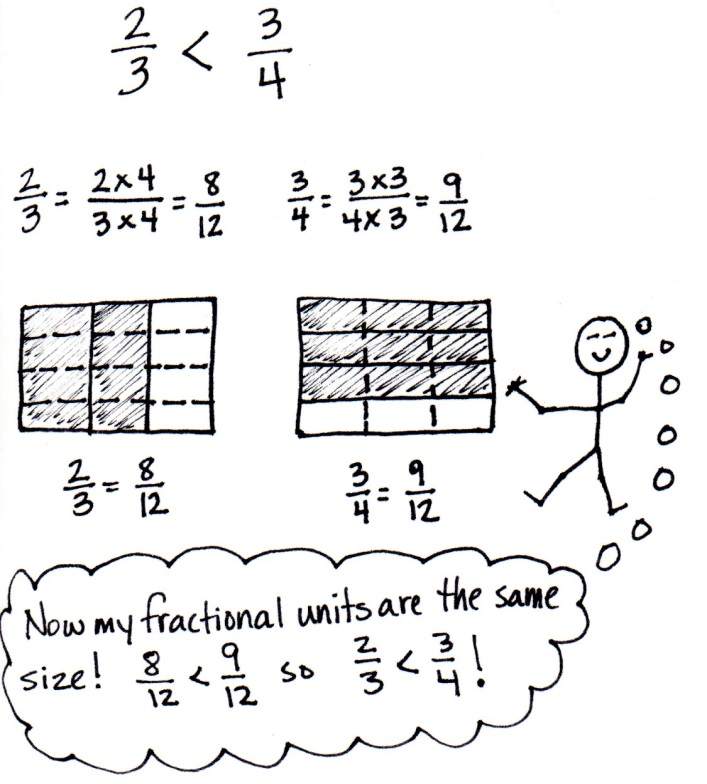 2/3 < 3/4
2/3 = 2×4/3×4 = 8/12 3/4 = 3×3/4×3 = 9/12
2/3 = 8/12 3/4 = 9/12
Now my fractional units are the same
size! 8/12 < 9/12 so 2/3 < 3/4!